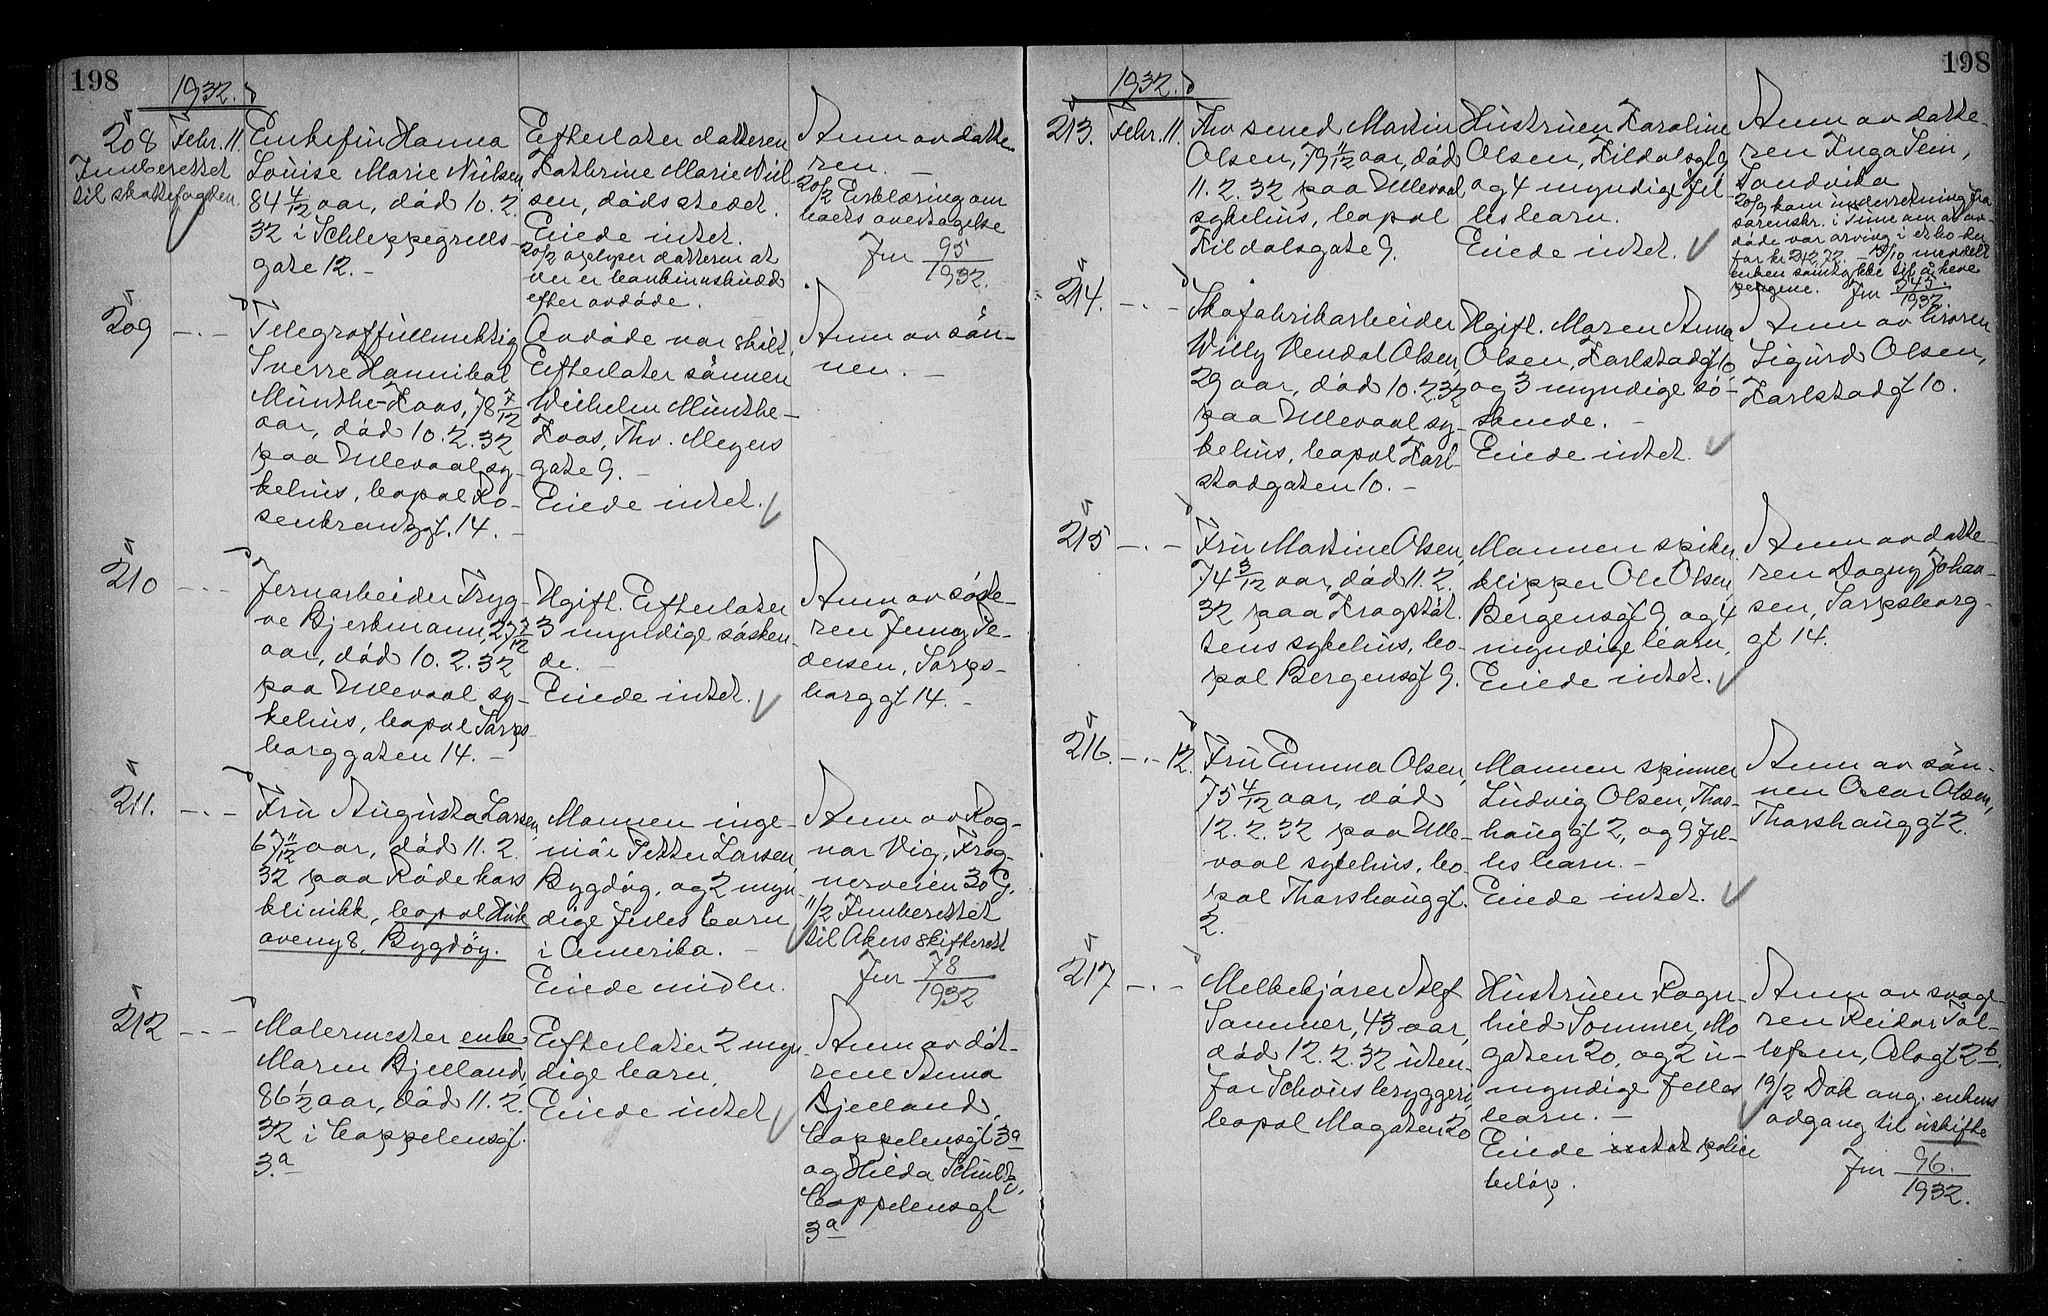 198
1932.
208
Innberettet
til skattefogden.
Febr. 11.
Enkefru Hanna
Louise Marie Nielsen,
84 4/12 aar, död 10.2.
32 i Schleppegrells-
gate 12. -
Efterlater datteren
Kathrine Marie Niel-
sen, dödsstedet.
Eiede intet.
20/2 oplyser datteren at
der er bankinnskudd
efter avdöde.
Anm av datte-
ren. -
20/2 Erklæring om
boets overtagelse
Jnr 95/1932.
209
-.-
Telegraffullmektig
Sverre Hannibal
Münthe-Kaas, 78 7/12
aar, död 10.2.32
paa Ullevaal sy-
kehus, bopæl Ro-
senkrantzgt. 14. -
Avdöde var skilt.
Efterlater sönnen
Wilhelm Münthe-
Kaas, Thv. Meyers
gate 9. -
Eiede intet.
Anm av sön-
nen. -
210
-.-
Jernarbeider Tryg-
ve Bjerkmann, 27 7/12
aar, död 10.2.32
paa Ullevaal sy-
kehus, bopæl Sarps-
borggaten 14. -
Ugift. Efterlater
3 myndige sösken-
de. -
Eiede intet.
Anm av söste-
ren Jenny Pe-
dersen, Sarps-
borggt 14. -
211.
-.-
Fru Augusta Larsen,
67 11/12 aar, död 11.2.
32 paa Röde kors
klinikk, bopæl Huk
aveny 8, Bygdöy.
Mannen inge-
niör Petter Larsen,
Bygdöy, og 2 myn-
dige felles barn
i Amerika. -
Eiede midler.
Anm av Rag-
nar Vig, Frog-
nerveien 30 G.
11/2 Innberettet
til Akers skifterett
Jnr 78/1932
212
-.-
Malermester enke
Maren Bjelland,
86 1/2 aar, död 11.2.
32 i Cappelensgt.
3a
Efterlater 2 myn-
dige barn.
Eiede intet
Anm av döt-
rene Anna
Bjelland,
Cappelensgt 3a
og Hilda Schultz,
Cappelensgt
3a
198
1932.
213.
Febr. 11.
Fhv smed Martin
Olsen, 79 11/12 aar, död
11.2.32 paa Ullevaal
sykehus, bopæl
Fildalsgate 9.
Hustruen Karoline
Olsen, Fildalsgt 9
og 4 myndige fel-
les barn.
Eiede intet.
Anm av datte-
ren Inga Sem,
Sandvika
20/9 kom underretning fra
sorenskr. i Time om at av-
döde var arving i et bo der
for kr 242,72. - 13/10 meddelt
enken samtykke til å heve
pengene. Jnr 545/1932.
214.
-.-
Skofabrikarbeider
Willy Vendal Olsen,
29 aar, död 10.2.32
paa Ullevaal sy-
kehus, bopæl Karl-
stadgaten 10. -
Ugift. Moren Anna
Olsen, Karlstadgt 10,
og 3 myndige sö-
skende. -
Eiede intet.
Anm av broren
Sigurd Olsen,
Karlstadgt 10.
215
-.-
Fru Martine Olsen,
74 3/12 aar, död 11.2.
32 paa Krogstöt-
tens sykehus, bo-
pæl Bergensgt 9.
Mannen spiker
klipper Ole Olsen,
Bergensgt 9 og 4
myndige barn,
Eiede intet.
Anm av datte-
ren Dagny Johan-
sen, Sarpsborg-
gt 14.
216.
-.- 12.
Fru Emma Olsen,
75 4/12 aar, död
12.2.32 paa Ulle-
vaal sykehus, bo-
pæl Thorshauggt.
2.
Mannen spinner
Ludvig Olsen, Thors-
hauggt 2, og 9 fel-
les barn. -
Eiede intet.
Anm av sön-
nen Oscar Olsen,
Thorshauggt 2.
217
-.-
Melkekjörer Alf
Sommer, 43 aar,
död 12.2.32 uten-
for Schous bryggeri,
bopæl Mogaten 20
Hustruen Ragn-
hild Sommer, Mo
gaten 20, og 2 u-
myndige felles
barn. -
Eiede intet police
belöp.
Anm av svoge-
ren Reidar Tol-
lefsen, Alogt 2b.
19/2 Dok ang. enkens
adgang til uskifte
Jnr 96./1932.